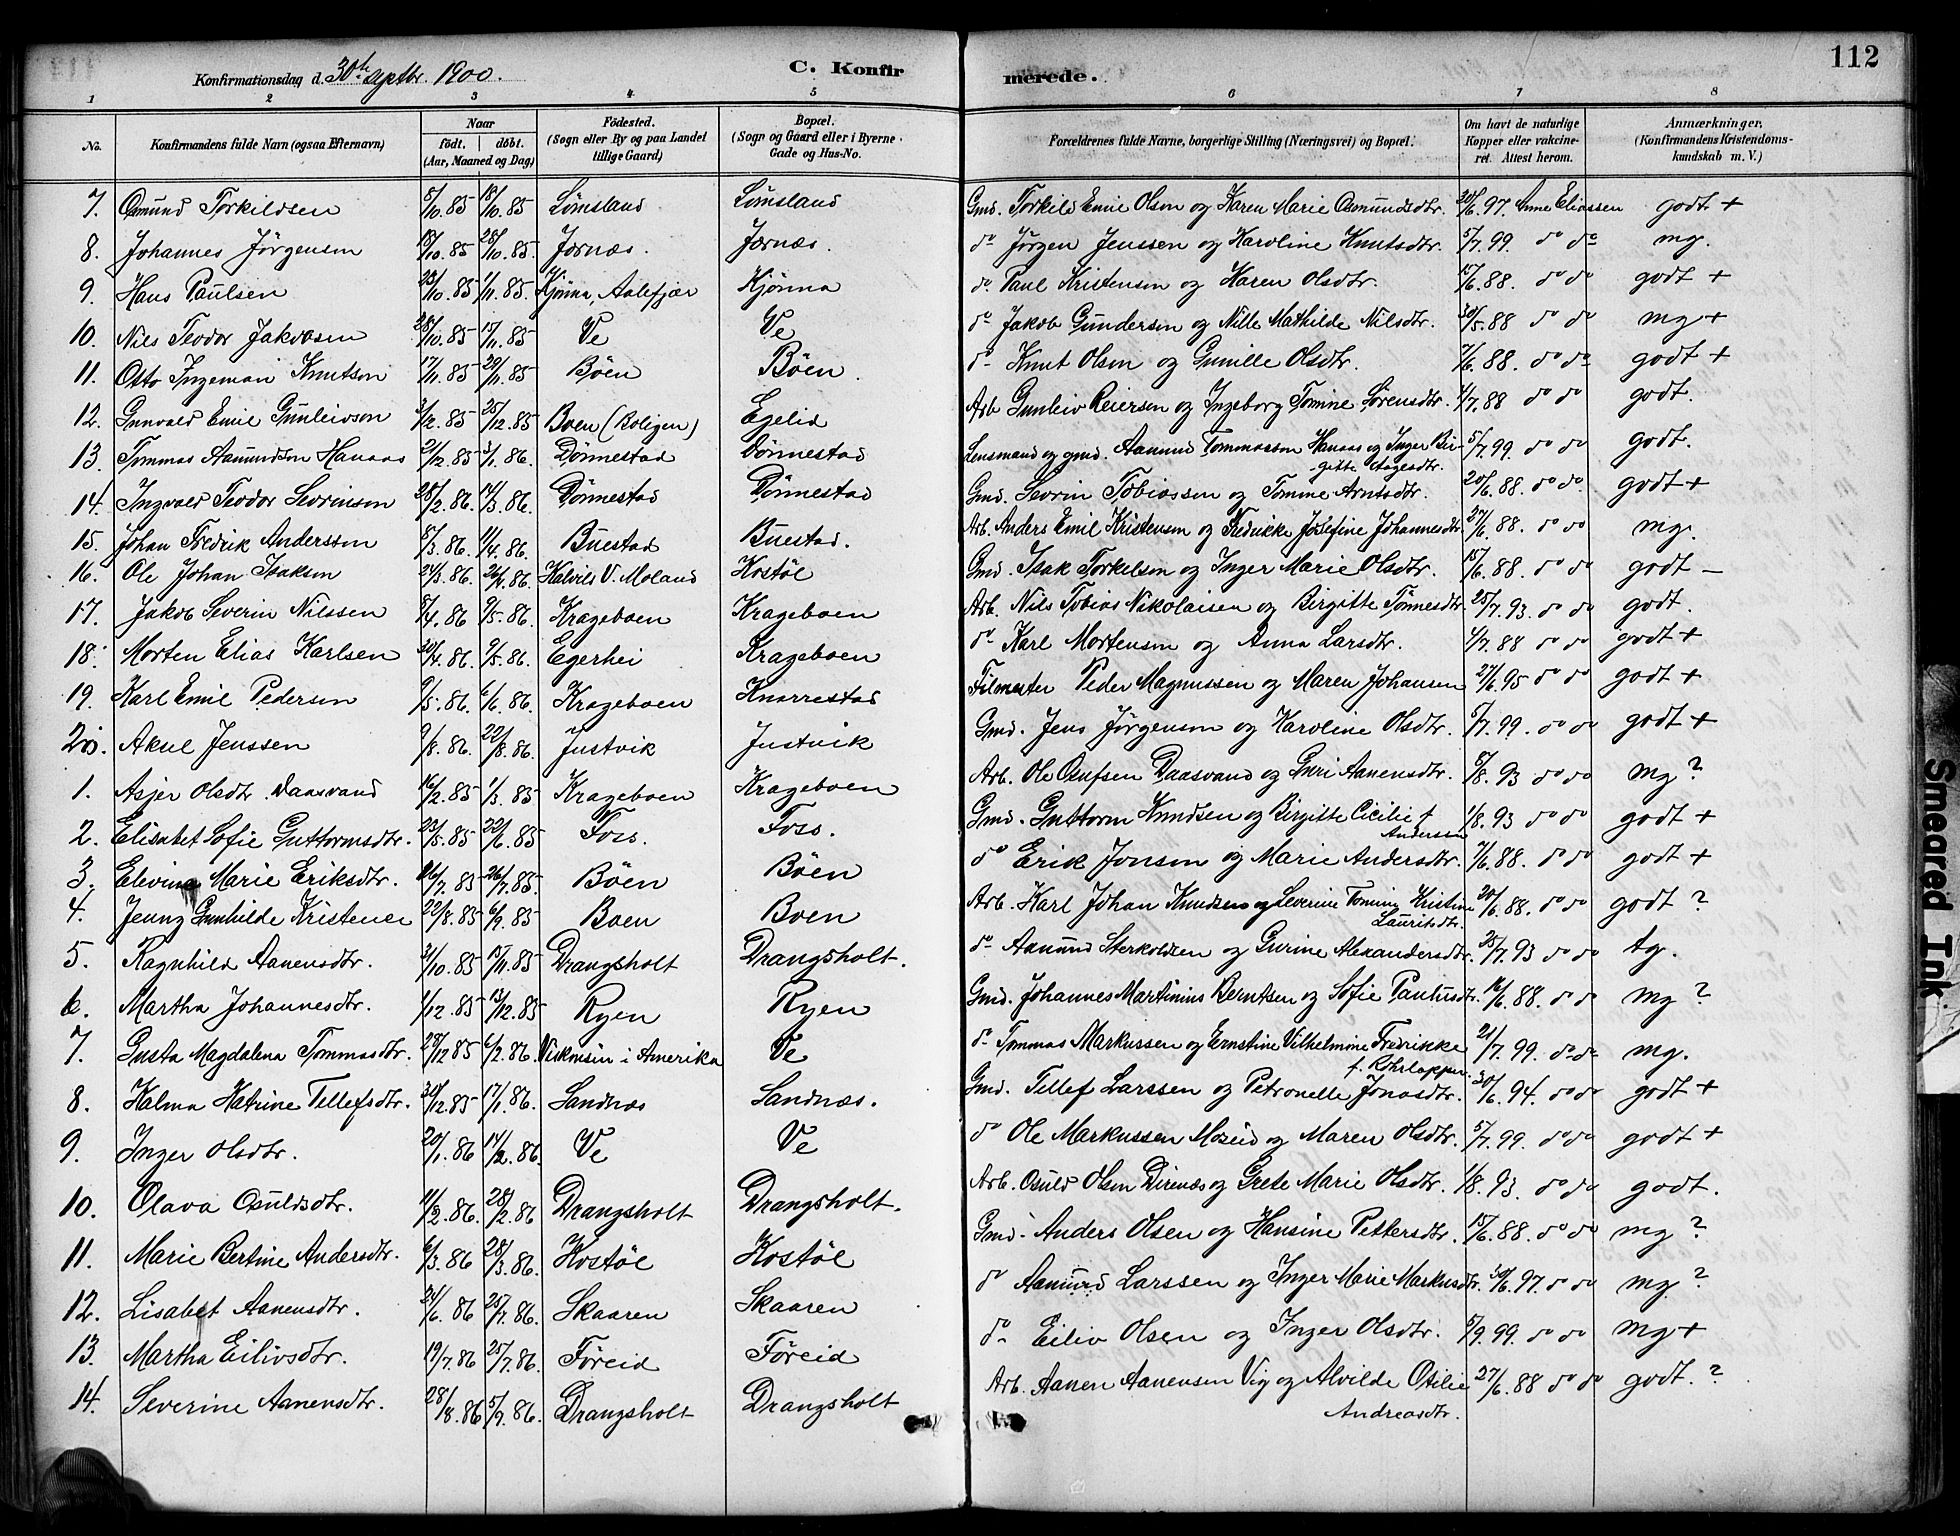 112
Konfirmationsdag d. 30te septbr. 1900.
C. Konfirmerede.
1 2 3 4 5 6 7 8
No. Konfirmandens fulde Navn (ogsaa Efternavn) Naar født, døbt. (Aar, Maaned og Dag) Födested. (Sogn eller By og paa Landet tillige Gaard) Bopæl. (Sogn og Gaard eller i Byerne Gade og Hus-No. Forældrenes fulde Navne, borgerlige Stilling (Næringsvei) og Bopæl. Om havt de naturlige Kopper eller vakcineret. Attest herom. Anmærkninger. (Konfirmandens Kristendomskundskab m. V.)
7. Osmund Torkildsen 5/10.85 18/10.85 Lömsland Lömsland Gmd. Torkild Emil Olsen og Karen Marie Osmundsdtr. 30/6.97. Anne Eliassen godt +
8. Johannes Jörgensen 13/10.85 28/10.85. Jornæs. Jornæs. do Jörgen Jenssen og Karoline Knutsdtr. 5/7.99. do do mg.
9. Hans Paulsen 23/10.85 1/11.85. Kjönna, Aalefjær Kjönna do. Paul Kristensen og Karen Olsdtr. 15/6.88. do do godt +
10. Nils Teodor Jakobsen 28/10.85 15/11.85 Ve Ve do Jakob Gundersen og Nille Mathilde Nilsdtr. 30/5.88 do do mg +
11. Otto Ingeman Knutson 17/11.85 29/11.85 Böen Böen. do Knut Olsen og Gunille Olsdtr. 7/6.88. do do godt +
12. Gunvald Emil Gunleivson 3/12.85 25/12.85 Boen (Boligen) Egelid Arb Gunleiv Reiersen og Ingeborg Tomine Sörensdtr. 4/7.88 do do godt.
13. Tommas Aamundson Hanaas 21/12.85 3/1.86. Dönnestad Dönnestad Lensmand og gmd. Aamund Tommasson Hanaas og Inger Birgitte Aagesdtr. 5/7.99. do do godt.
14. Ingvald Teodor Sevrinson 28/2.86. 14/3.86. Dönnestad Dönnestad Gmd. Sevrin Tobiassen og Tomine Arntsdtr. 20/6.88. do do. godt +
15. Johan Fredrik Anderssen 8/3.86. 11/4.86. Buestad Buestad. Arb. Anders Emil Kristensen og Fredrikke Josefine Johannesdtr. 27/6.88. do do mg.
16. Ole Johan Isaksen 24/3.86. 26/4.86. Kalvils V. Moland Kostöl Gmd. Isak Torkelsen og Inger Marie Olsdtr. 15/6.88. do do godt –
17. Jakob Severin Nilssen 8/4.86 9/5.86. Krageboen Krageboen Arb. Nils Tobias Nikolaisen og Birgitte Tönnesdtr. 25/7.93. do do godt.
18. Morten Elias Karlsen 20/4.86. 9/5.86. Egerhei Krageboen do Karl Mortensen og Anna Larsdtr. 4/7.88 do do godt +
19. Karl Emil Pedersen 9/5.86. 6/6.86. Krageboen Knarrestad Filmester Peder Magnussen og Maren Johansen 27/6.95 do do godt +
20. Aksel Jenssen 9/8.86. 22/8.86. Justvik Justvik Gmd. Jens Jörgensen og Karoline Olsdtr. 5/7.99. do do godt +
1. Asjer Olsdtr. Daasvand 16/2.85 1/3.85 Krageboen Krageboen Arb. Ole Osufsen Daasvand og Guri Aanensdtr. 5/8.93 do do mg ?
2. Elisabet Sofie Guttormsdtr. 23/5.85 22/6.85 Foss. Foss. Gmd. Guttorm Knudsen og Birgitte Cicilie f Andersen 1/8.93 do do godt +
3. Elevine Marie Eriksdtr. 16/7.85 26/7.85. Böen Böen do Erik Jonsen og Marie Andersdtr. 7/6.88. do do godt +
4. Jenny Gunhilde Kristener 22/8.85 6/9.85 Boen Boen Arb. Karl Johan Knudsen og Severine Tomine Kristine Lauritsdtr. 20/6.88. do do godt ?
5. Ragnhild Aanensdtr. 21/10.85 15/11.85 Drangsholt Drangsholt. do Aanund Sterkoldsen og Gurine Alexandersdtr. 25/7.93 do do tg.
6. Martha Johannesdtr. 1/12.85 13/12.85 Ryen Ryen Gmd. Johannes Martinius Berntsen og Sofie Paulusdtr. 16/6.88. do do mg ?
7. Gusta Magdalena Tommasdtr. 28/12.85 6/2.86. Viskonsin i Amerika Ve do Tommas Markussen og Ernstine Vilhelmine Fredrikke f. Rohrlapper. 21/7.99. do do mg.
8. Kalma Katrine Tellefsdtr. 30/12.85 17/1.86. Sandnæs Sandnæs. Gmd. Tellef Larssen og Petronelle Jonasdtr. 30/6.94. do do godt +
9. Inger Olsdtr. 20/1.86 14/2.86. Ve Ve do Ole Markussen Moseid og Maren Olsdtr. 5/7.99. do do godt +
10. Olava Osuldsdtr. 11/2.86. 28/2.86 Drangsholt Drangsholt. Arb. Osuld Olsen Direnæs og Grete Marie Olsdtr. 1/8.93. do do godt.
11. Marie Bertine Andersdtr. 6/3.86 28/3.86. Kostöl Kostöl Gmd. Anders Olsen og Hansine Pettersdtr. 15/6.88. do do mg ?
12. Lisabet Aanensdtr. 24/6.86 25/7.86. Skaaren Skaaren do Aamund Larssen og Inger Marie Markusdtr. 30/6.97. do do mg ?
13. Martha Eilivsdtr. 19/7.86 25/7.86. Föreid Föreid do Eiliv Olsen og Inger Olsdtr. 5/9.99. do do mg +
14. Severine Aanensdtr. 28/8.86 5/9.86. Drangsholt Drangsholt Arb. Aanen Aanensen Vig og Alvilde Otilie Andreasdtr. 27/6.88 do do godt. ?
Smeared Ink